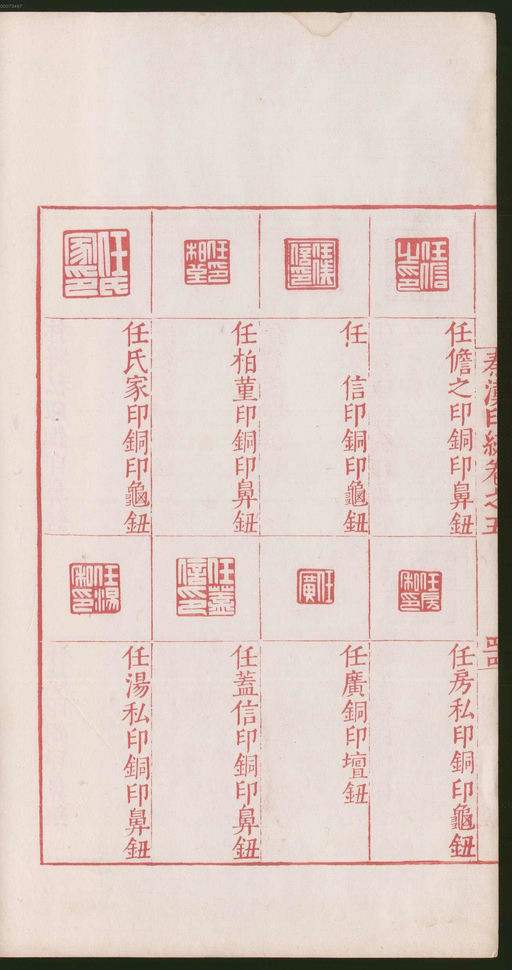 00073467
秦漢印統卷之五
四
任儋之印銅印鼻鈕
任 信印銅印龜鈕
任柏菫印銅印鼻鈕
任氏家印銅印龜鈕
任房私印銅印龜鈕
任廣銅印壇鈕
任蓋信印銅印鼻鈕
任湯私印銅印鼻鈕